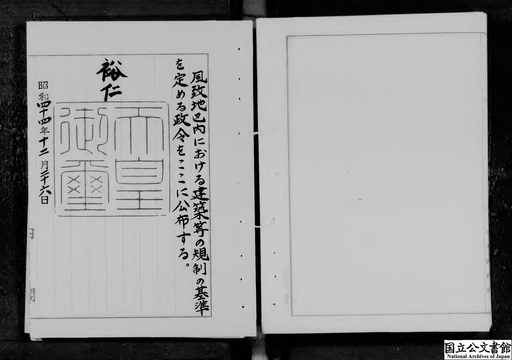 風致地区内における建築等の規制の基準
を定める政令をここに公布する。
裕仁
天皇
御璽
昭和四十四年十二月二十六日
国立公文書館
National Archives of Japan